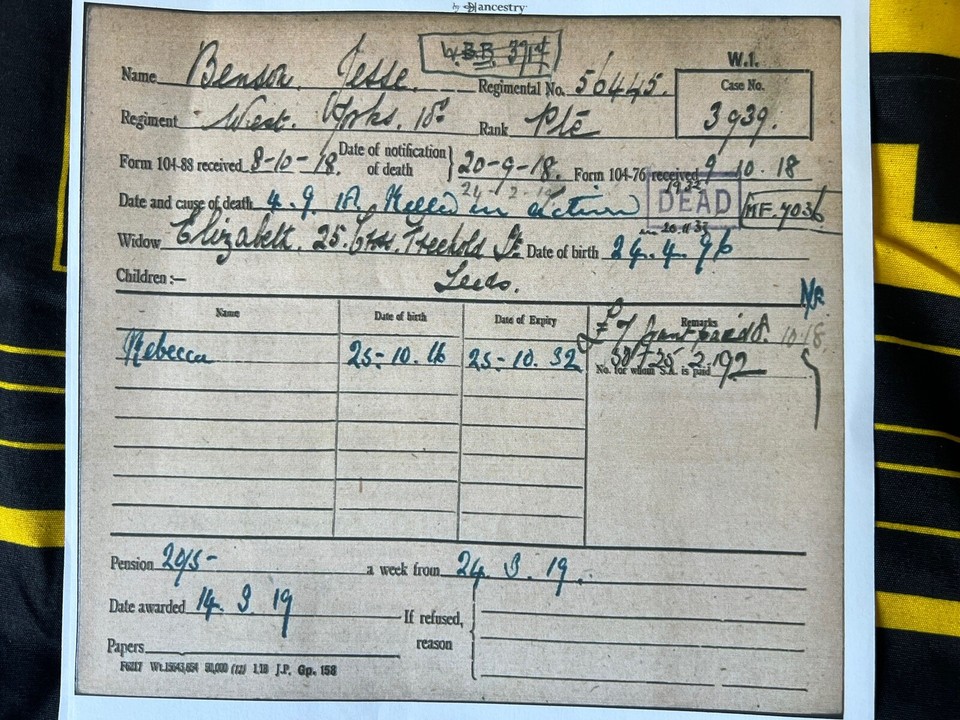 by ancestry
W.B.B. 3/14
W.1.
Name Benson. Jesse. Regimental No. 56445. Case No.
Regiment West. Yorks. 18th Rank Pte 3939.
Form 104-88 received 8-10-18. Date of notification of death } 20-9-18. Form 104-76 received 9 10. 18
Date and cause of death 4. 9. 18. Killed in action DEAD MF. 7036
Widow Elizabeth. 25. Freehold St. Date of birth 24. 4. 96
Children :— Leeds.
Name Date of birth Date of Expiry Remarks
Rebecca 25-10. 16 25-10. 32
No. for whom S.A. is paid
Pension 20/5- a week from 24. 3. 19.
Date awarded 14. 3. 19 If refused,
reason
Papers
F6217 30,000 (12) 1.18 J.P. Gp. 158